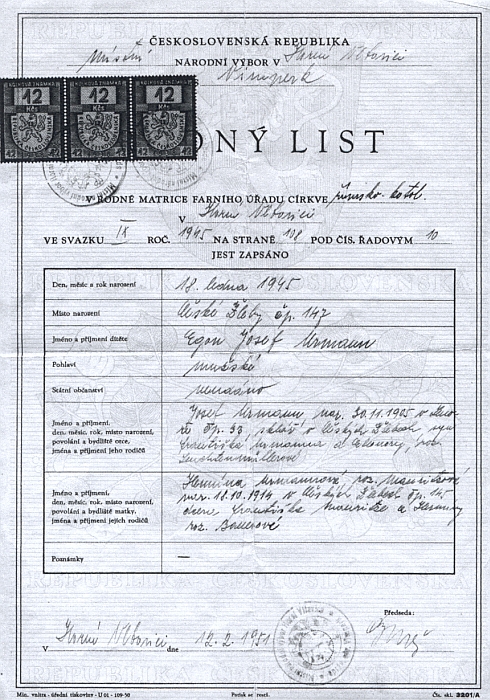 ČESKOSLOVENSKÁ REPUBLIKA
Místní NÁRODNÍ VÝBOR V Horní Vltavici
Vimperk
KOLKOVÁ ZNÁMKA KOLKOVÁ ZNÁMKA KOLKOVÁ ZNÁMKA
12 12 12
Kčs Kčs Kčs
DNÝ LIST
V RODNÉ MATRICE FARNÍHO ÚŘADU CÍRKVE římsko-katol.
V Horní Vltavici
VE SVAZKU IX ROČ. 1945 NA STRANĚ 108 POD ČÍS. ŘADOVÝM 10
JEST ZAPSÁNO
Den, měsíc a rok narození 18. ledna 1945
Místo narození České Žleby čp. 147
Jméno a příjmení dítěte Egon Josef Urmann
Pohlaví mužské
Státní občanství neudáno
Jméno a příjmení,
den, měsíc, rok, místo narození,
povolání a bydliště otce,
jména a příjmení jeho rodičů
Josef Urmann nar. 30.11.1905 v
čp. 33 v Českých Žlebech, syn
Františka Urmanna a roz.
Jméno a příjmení,
den, měsíc, rok, místo narození,
povolání a bydliště matky,
jména a příjmení jejích rodičů
Hermina Urmannová roz.
nar. 18.10.1914 v Českých Žlebech čp.
dcera Františka a
roz.
Poznámky —
V Horní Vltavici dne 12.2.1951
Předseda:
Min. vnitra - úřední tiskovice - U 01 - 109-50
Čís. skl. 3201/A